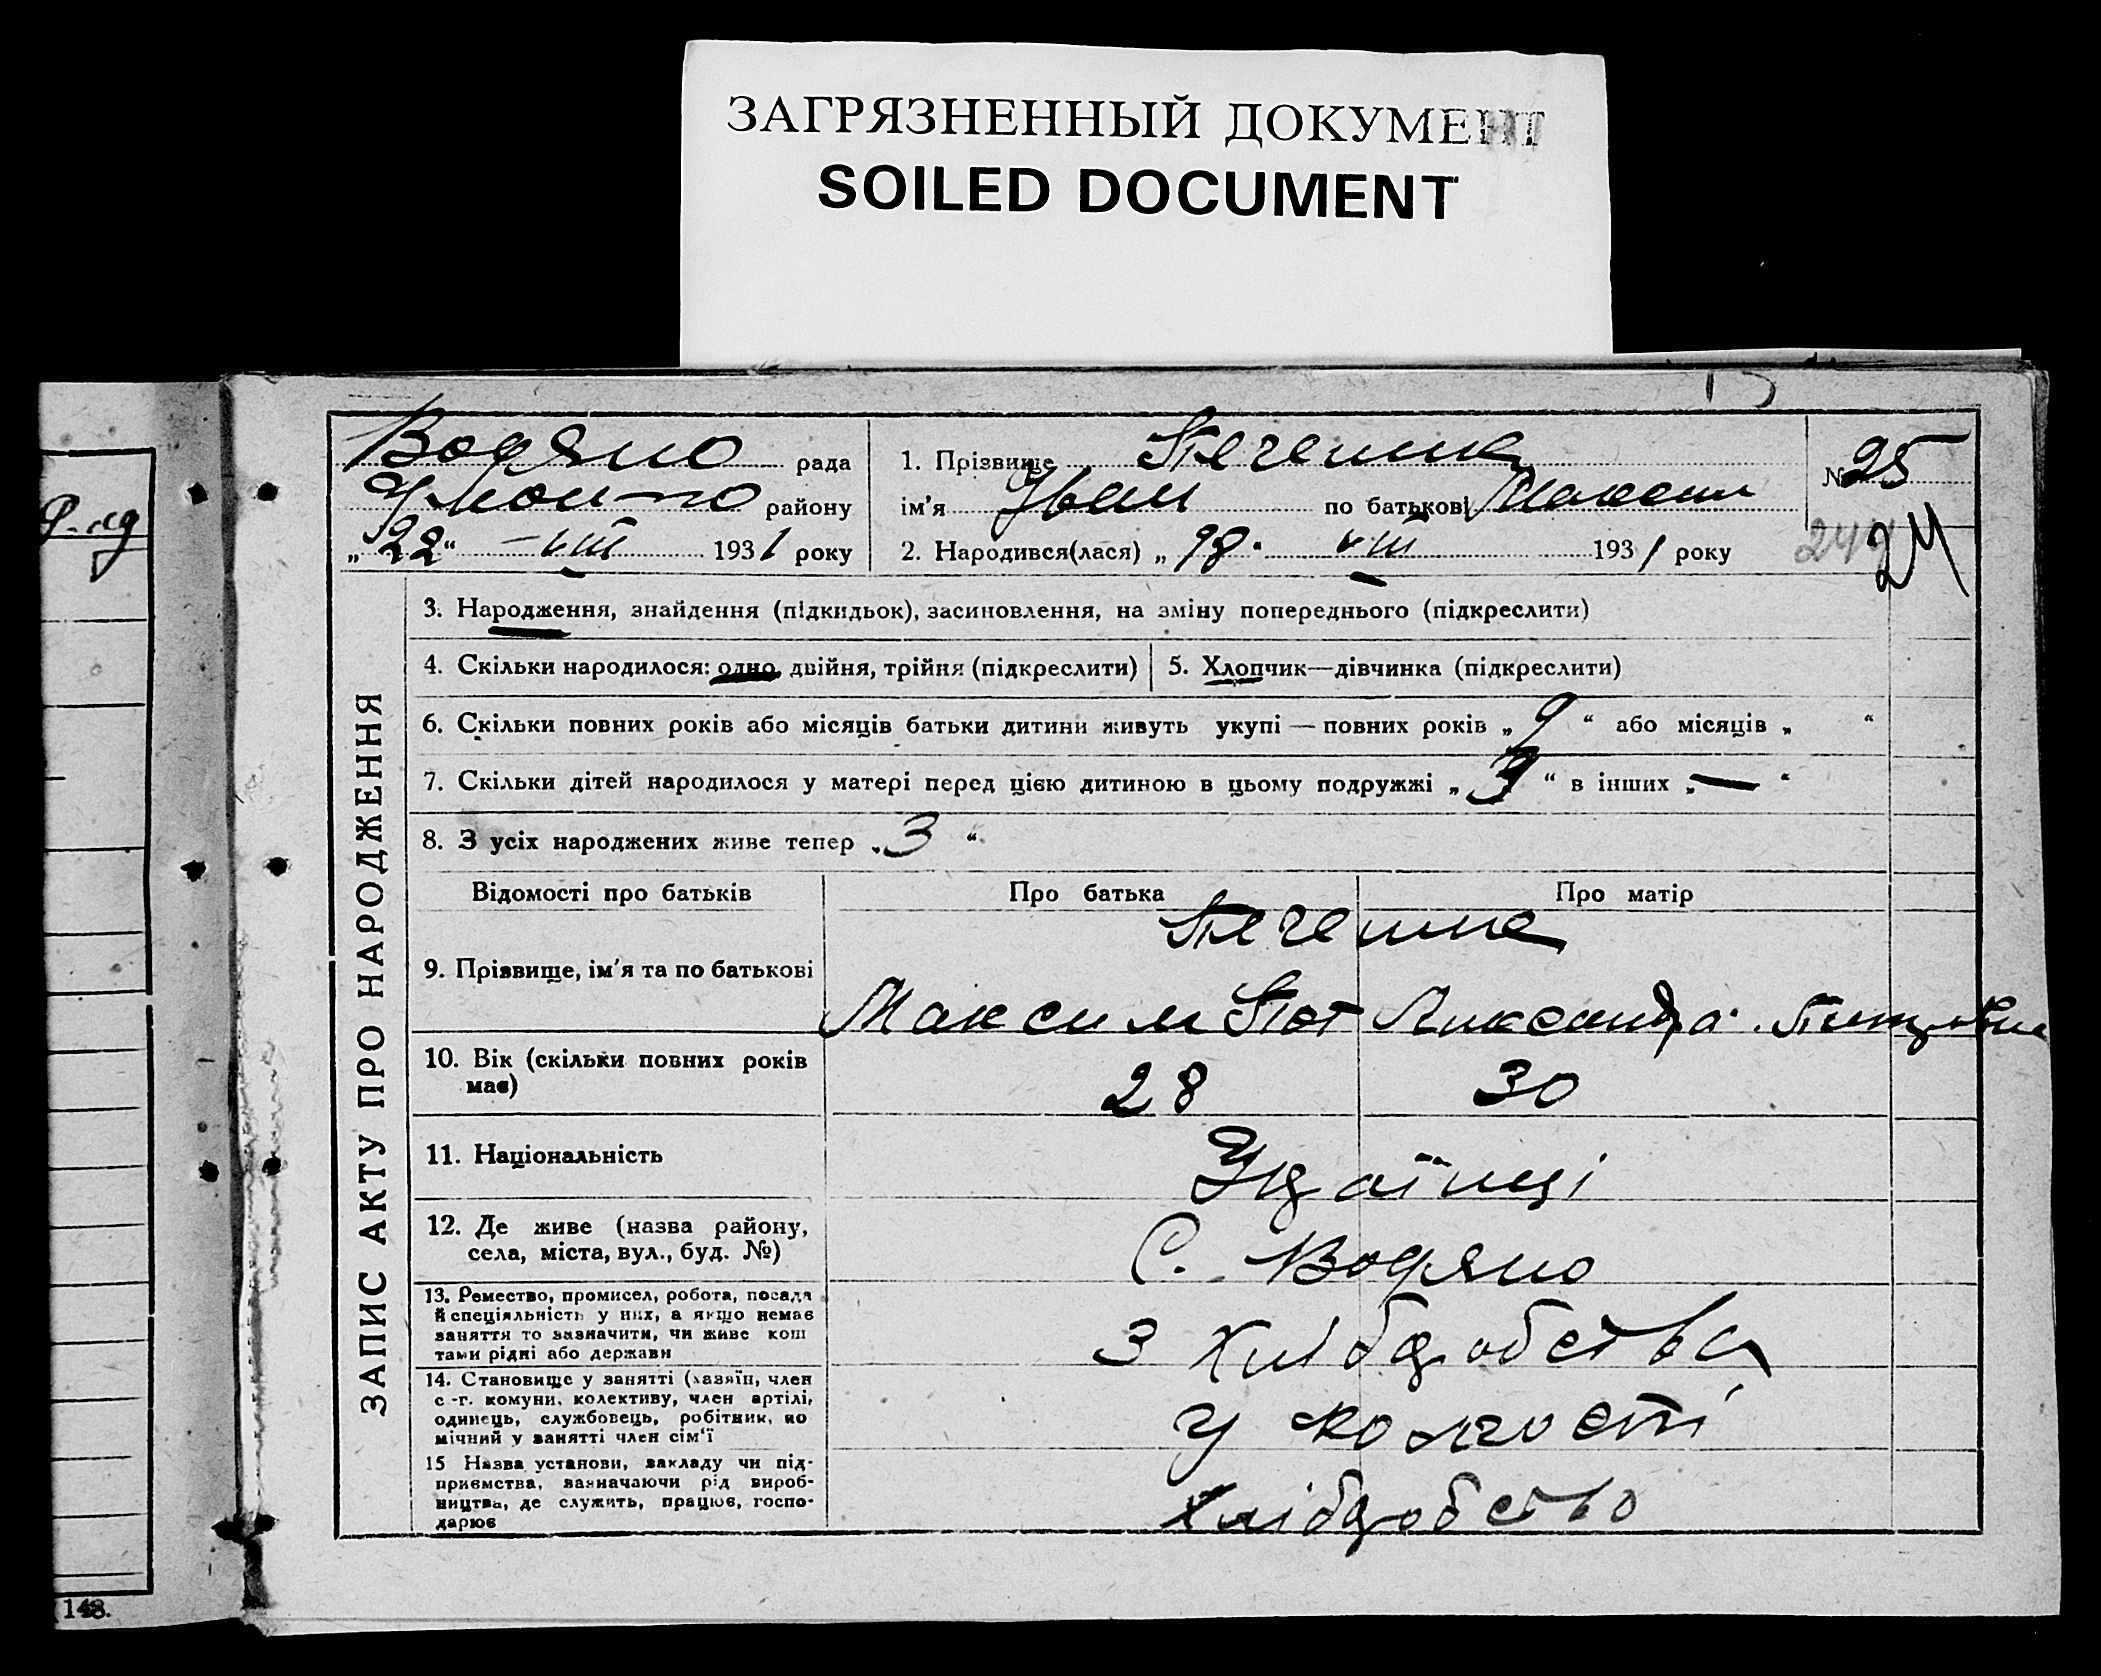 ЗАГРЯЗНЕННЫЙ ДОКУМЕНТ
SOILED DOCUMENT
Водяно рада
району
„22“ VIII 1931 року
1. Прізвище
ім'я Іван по батькові Максим
2. Народився(лася) „18“ VIII 1931 року
№ 25
249
24
ЗАПИС АКТУ ПРО НАРОДЖЕННЯ
3. Народження, знайдення (підкидьок), засиновлення, на зміну попереднього (підкреслити)
4. Скільки народилося: одно, двійня, трійня (підкреслити)
5. Хлопчик—дівчинка (підкреслити)
6. Скільки повних років або місяців батьки дитини живуть укупі — повних років „9“ або місяців „ “
7. Скільки дітей народилося у матері перед цією дитиною в цьому подружжі „3“ в інших „—“
8. З усіх народжених живе тепер „3“
Відомості про батьків Про батька Про матір
9. Прізвище, ім'я та по батькові
Максим Пот Ликсандра
10. Вік (скільки повних років має) 28 30
11. Національність Украінці
12. Де живе (назва району, села, міста, вул., буд. №) С. Водяно
13. Ремество, промисел, робота, посада й спеціяльність у них, а якщо немає заняття то зазначити, чи живе коштами рідні або держави
З Хлібробства
14. Становище у занятті (хазяїн, член с.-г. комуни, колективу, член артілі, одинець, службовець, робітник, помічний у занятті член сім'ї
У колгості
15 Назва установи, закладу чи підприємства, зазначаючи рід виробництва, де служить, працює, господарює
Хлібробство
148.